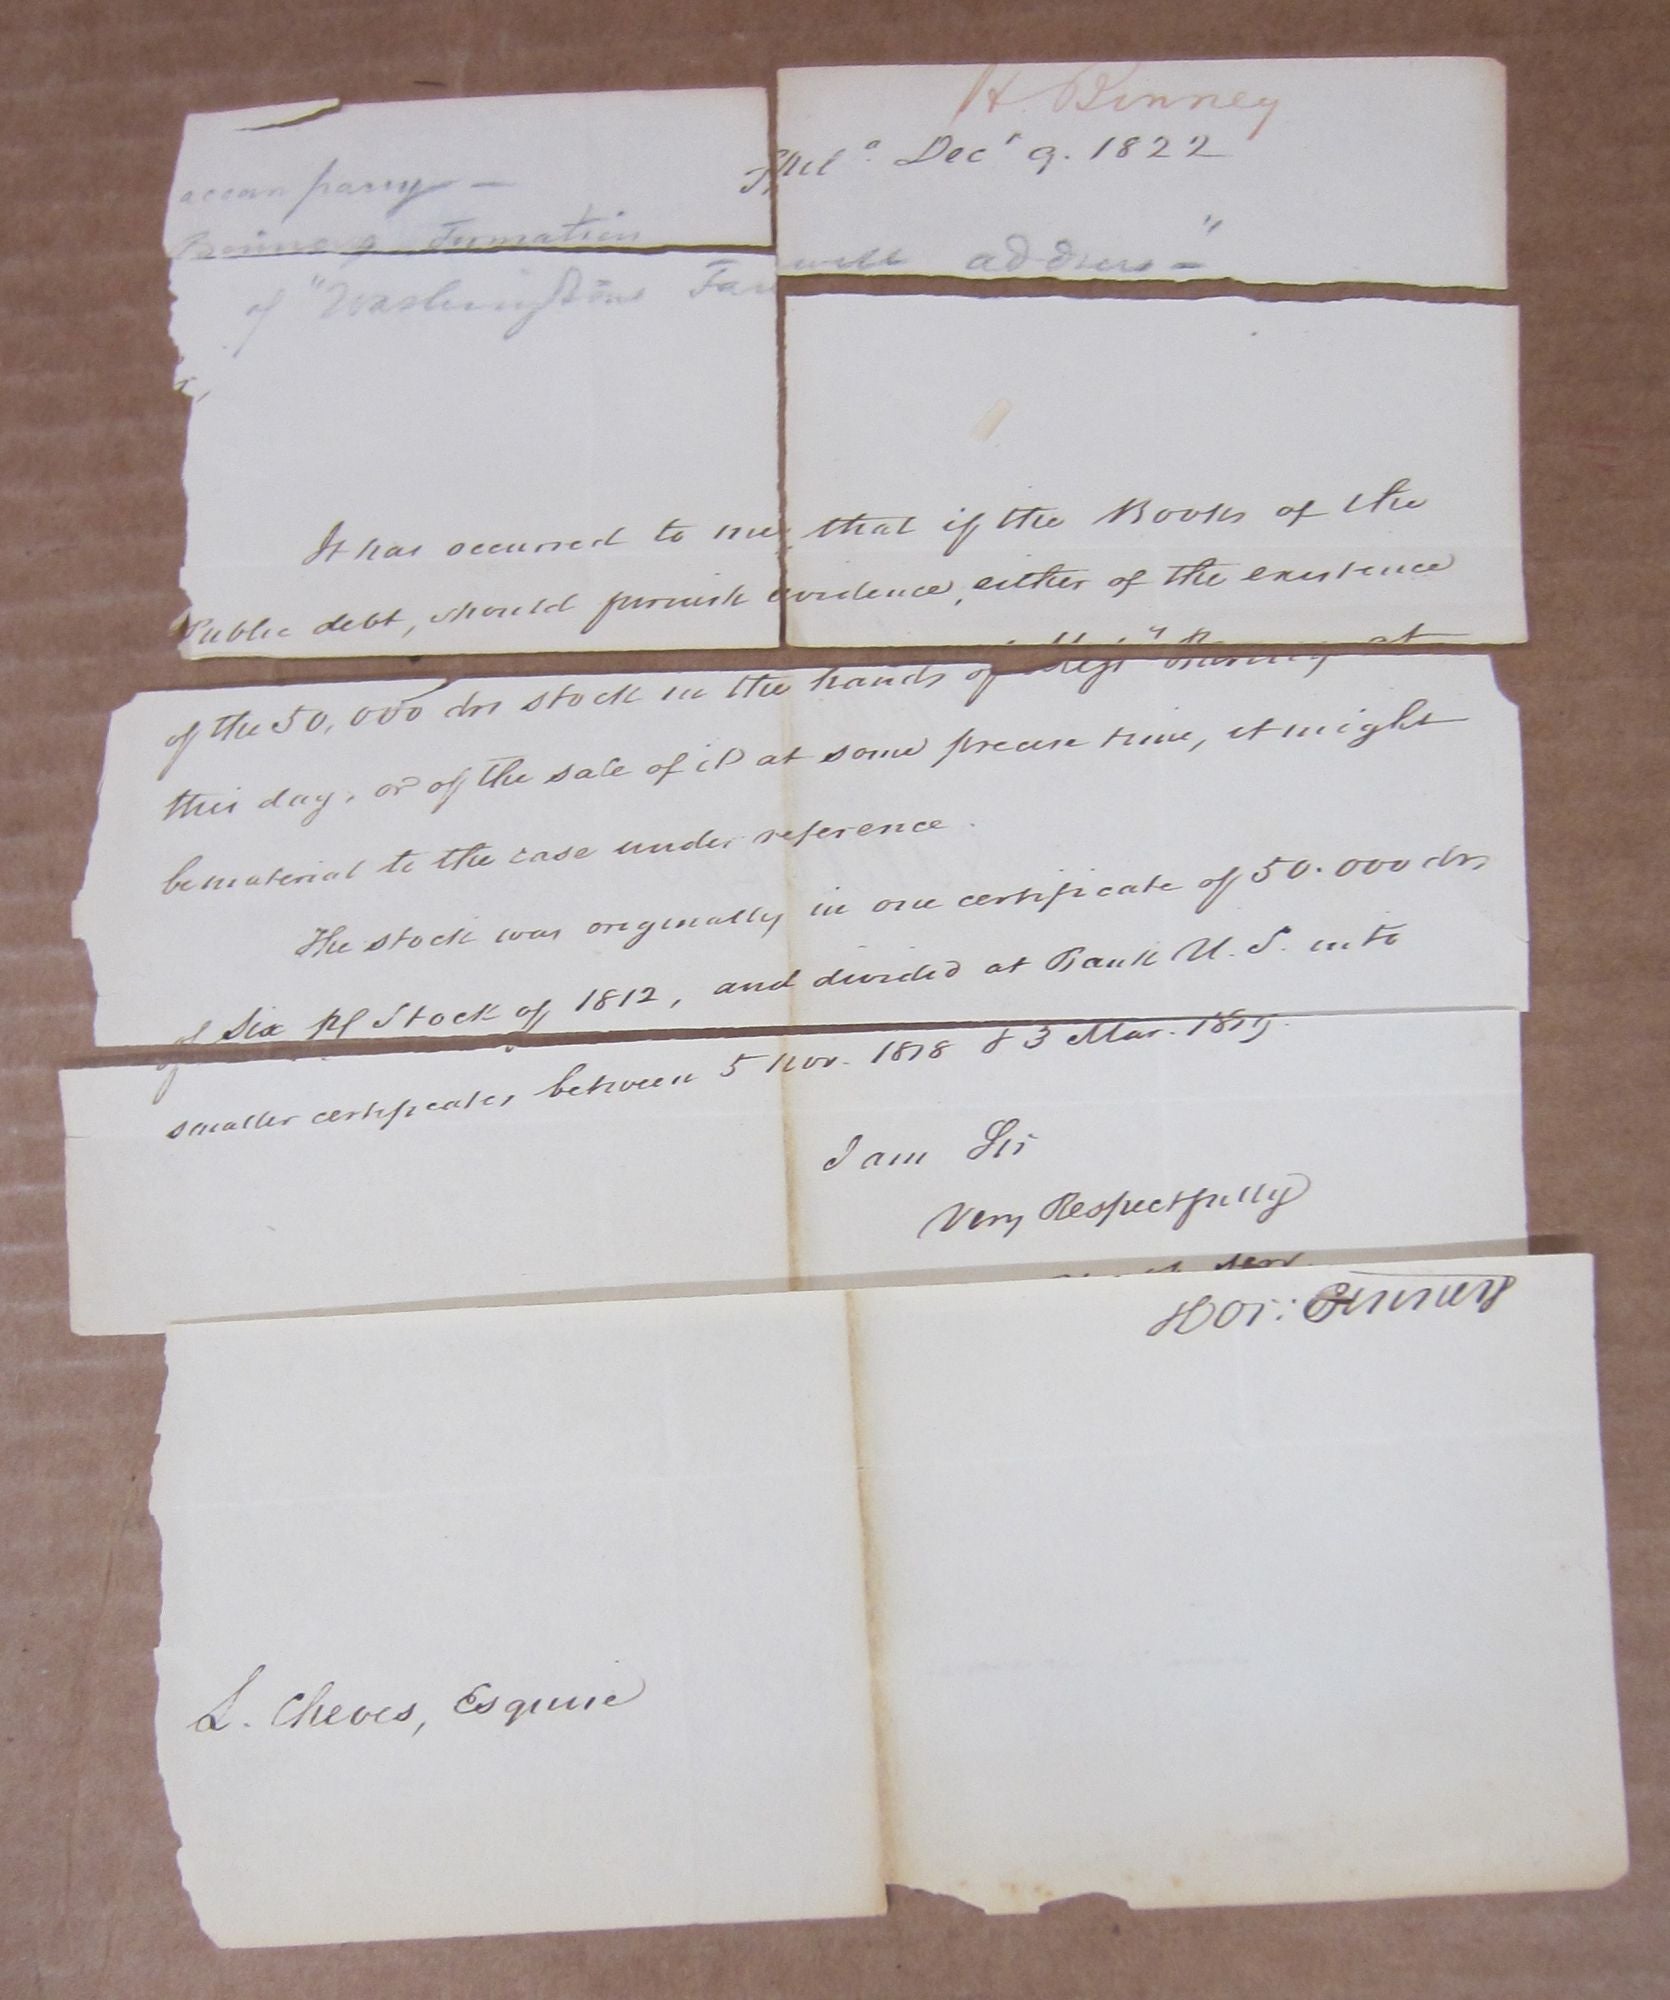 H. Binney
Phila. Decr 9. 1822
accompany —
Binneys Formation
of "Washingtons Farewell address —"
It has occurred to me, that if the Books of the
Public debt, should furnish evidence, either of the existence
of the 50,000 drs stock in the hands of at
this day, or of the sale of it at some precise time, it might
be material to the case under reference.
The stock was originally in one certificate of 50.000 drs
of Six pr Stock of 1812, and divided at Bank U. S. into
smaller certificates between 5 Nov. 1818 & 3 Mar. 1819.
I am Sir
Very Respectfully
serv.
Hor: Binney
L. Cheves, Esquire